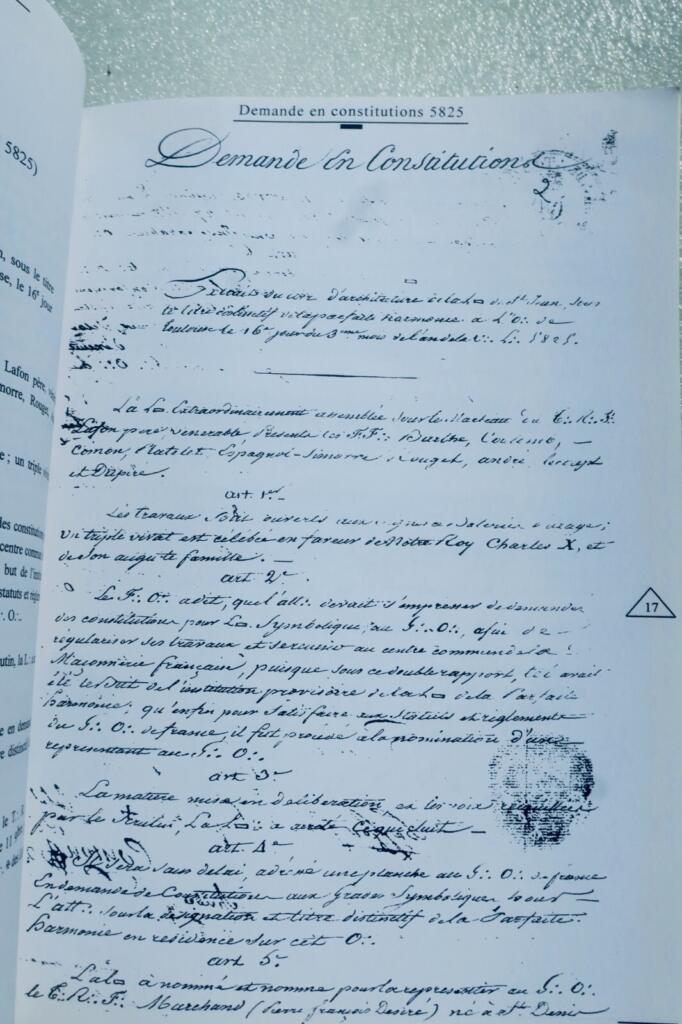 Demande en constitutions 5825
Demande En Constitutions
2
Extrait du livre d'architecture de la L∴ de St Jean, sous
le titre distinctif de la parfaite harmonie à L'O∴ de
Toulouse le 16e jour du 3me mois de l'an de la V∴ L∴ 5825.
La L∴ Extraordinairement assemblée sous le Marteau du T∴ R∴ F∴
Lafon père, vénérable Présents les FF∴ Barthe,
Comon, Ratelet, Espagnol-Simorre Rouget, andré
et Dupire.
art. 1er
Les travaux ouverts aux usage;
un triple vivat est célébré en faveur de Notre Roy Charles X, et
de son auguste famille. —
art 2e
Le F∴ O∴ a dit, que l'att∴ devait s'empresser de demander
des constitutions pour La L∴ Symbolique, au G∴ O∴, afin de —
régulariser ses travaux et se réunir au centre commun de la
Maçonnerie française, puisque sous ce double rapport, tel avait
été le but de l'institution provisoire de la L∴ de la Parfaite
harmonie; qu'enfin pour satisfaire aux Statuts et règlements
du G∴ O∴ de france, il fut procédé à la nomination d'un
représentant au G∴ O∴
art 3e
La matière mise en délibération et les voix recueillies
par le Scrutin, La L∴ a arrêté ce qui suit —
art 4e
Il sera sans délai, adréssé une planche au G∴ O∴ de france
En demande de Constitutions aux grades Symboliques pour —
L'att∴ sous la désignation et titre distinctif de la Parfaite
harmonie en résidence sur cet O∴
art 5e
La L∴ à nommé et nomme pour la représenter au G∴ O∴
le T∴ R∴ F∴ Marchand (Pierre françois Désiré) né à St Denis
17
5825)
sous le titre
se, le 16e jour
Lafon père,
norre, Rouget,
; un triple
des constitutions
centre commun
but de l'
statuts et
∴ O∴
utin, la L∴
le T∴ R∴